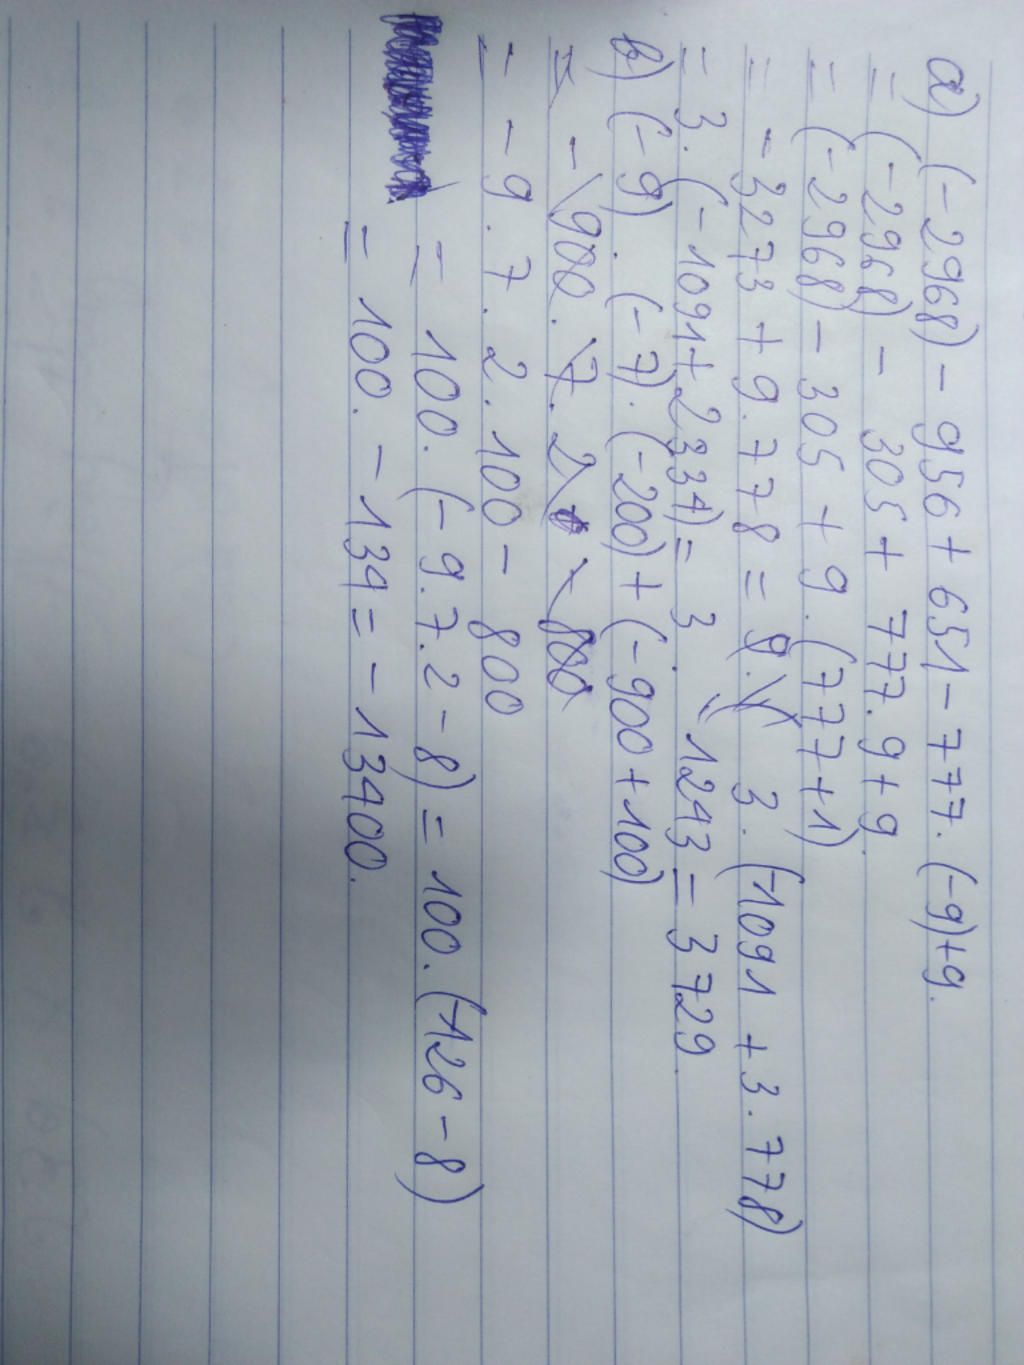 a) (-2968) - 956 + 651 - 777. (-9)+9.
= (-2968) - 305 + 777. 9 + 9.
= (-2968) - 305 + 9. (777+1)
= - 3273 + 9. 778 = 9. ( 3. (-1091 + 3. 778)
= 3. (-1091 + 2334) = 3 . 1243 = 3729.
b) (-9) . (-7). (-200) + (-900 + 100)
= - 900. 7. 2 - 800
= - 9. 7. 2. 100 - 800
= 100. (-9.7.2 - 8) = 100. (-126 - 8)
= 100. - 134 = - 13400.